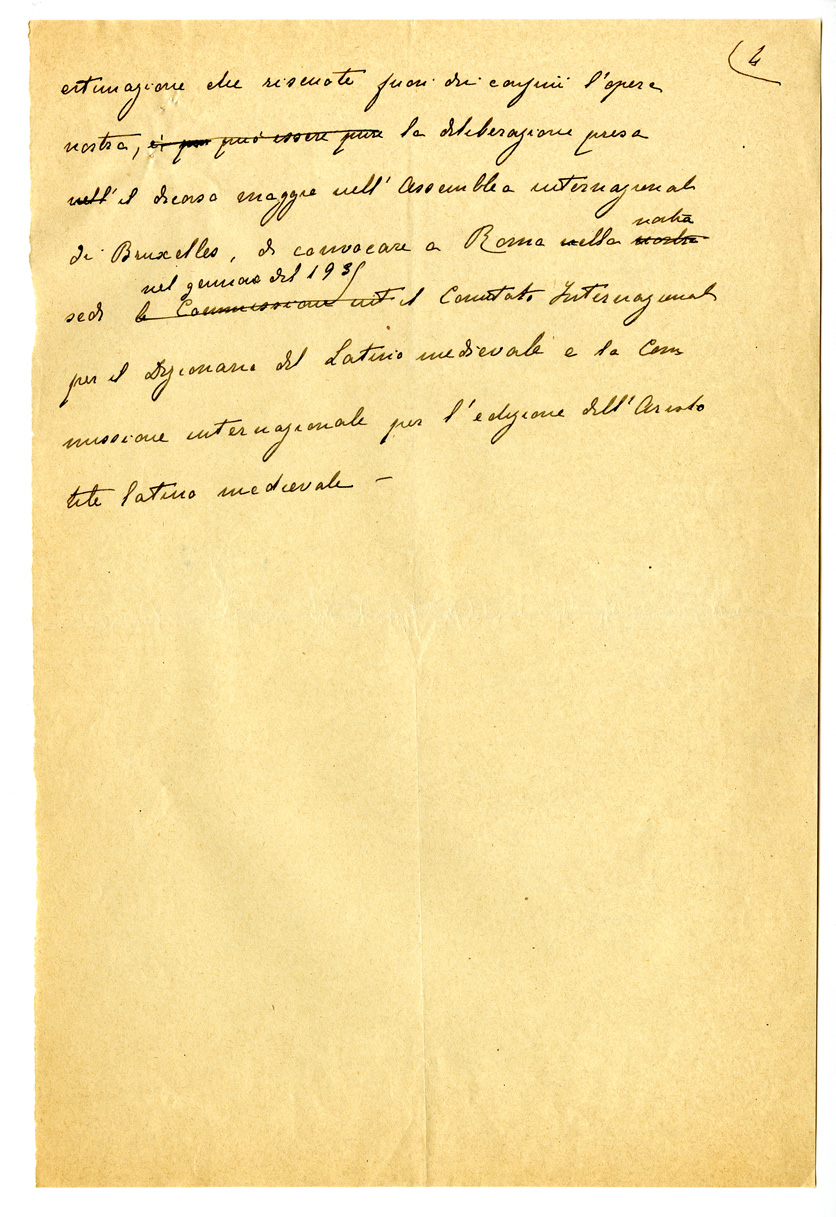 4
estimazione che riscuote fuori dei confini l'opera
nostra, è può essere pure la deliberazione presa
nell' il decorso maggio nell'Assemblea internazional
di Bruxelles, di convocare a Roma nella nostra nostra
nel gennaio del 1935
sede la Commissione int il Comitato Internazional
per il Dizionario del Latino medievale e la Com
missione internazionale per l'edizione dell'Aristo
tele latino medievale –